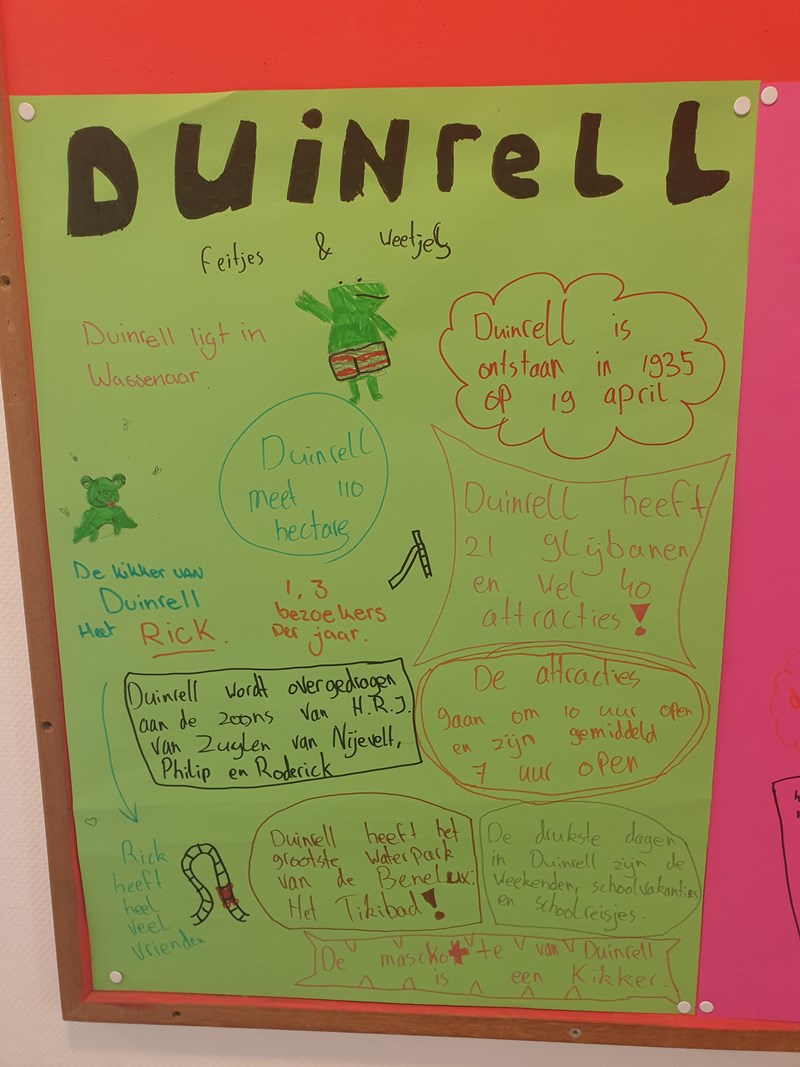 DUiNreLL
feitjes & weetjes
Duinrell ligt in
Wassenaar.
Duinrell is
ontstaan in 1935
op 19 april
Duinrell
meet 110
hectare
Duinrell heeft
21 glijbanen
en wel 40
attracties!
De kikker van
Duinrell
Heet RICK.
1,3
bezoekers
per jaar.
Duinrell wordt overgedragen
aan de zoons van H.R.J.
van Zuylen van Nijevelt,
Philip en Roderick
De attracties
gaan om 10 uur open
en zijn gemiddeld
7 uur open
Rick
heeft
heel
veel
vrienden
Duinrell heeft het
grootste waterpark
van de Benelux:
Het Tikibad!
De drukste dagen
in Duinrell zijn de
weekenden, schoolvakanties
en schoolreisjes.
De masckotte van Duinrell
is een Kikker.